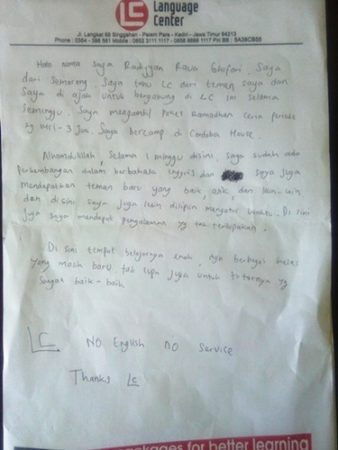 LC Language Center
Jl. Langkat 88 Singgahan - Pelem Pare - Kediri - Jawa Timur 64213
Phone : 0354 - 396 561 Mobile :
Halo nama saya Radyyan Rawa Ghofari. Saya
dari Semarang. Saya tahu LC dari teman saya dan
Saya di ajak untuk bergabung di LC ini selama
seminggu. Saya mengambil Paket Ramadhan Ceria periode
Saya bercamp di Cordoba House.
Alhamdulillah, Selama 1 minggu disini, saya sudah ada
perkembangan dalam berbahasa inggris dan saya juga
mendapatkan teman baru yang baik, asik, dan lain-lain
dan disini saya juga lebih disiplin mengatur waktu. Di sini
juga saya mendapat pengalaman yg tak terlupakan.
Di sini tempat belajarnya enak, dgn berbagai kelas
yang masih baru, tak lupa juga untuk tutornya yg
sangat baik-baik
LC No English no Service
Thanks LC
packages for better learning